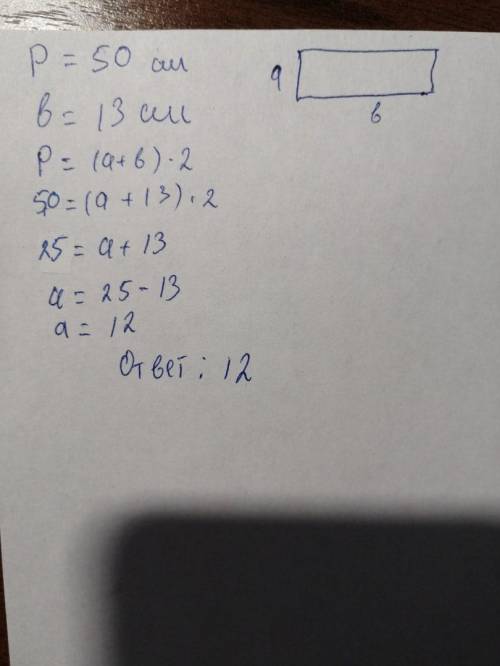 P = 50 см
в = 13 см
P = (a+в)·2
50 = (a + 13)·2
25 = a + 13
a = 25 - 13
a = 12
Ответ: 12
a
в